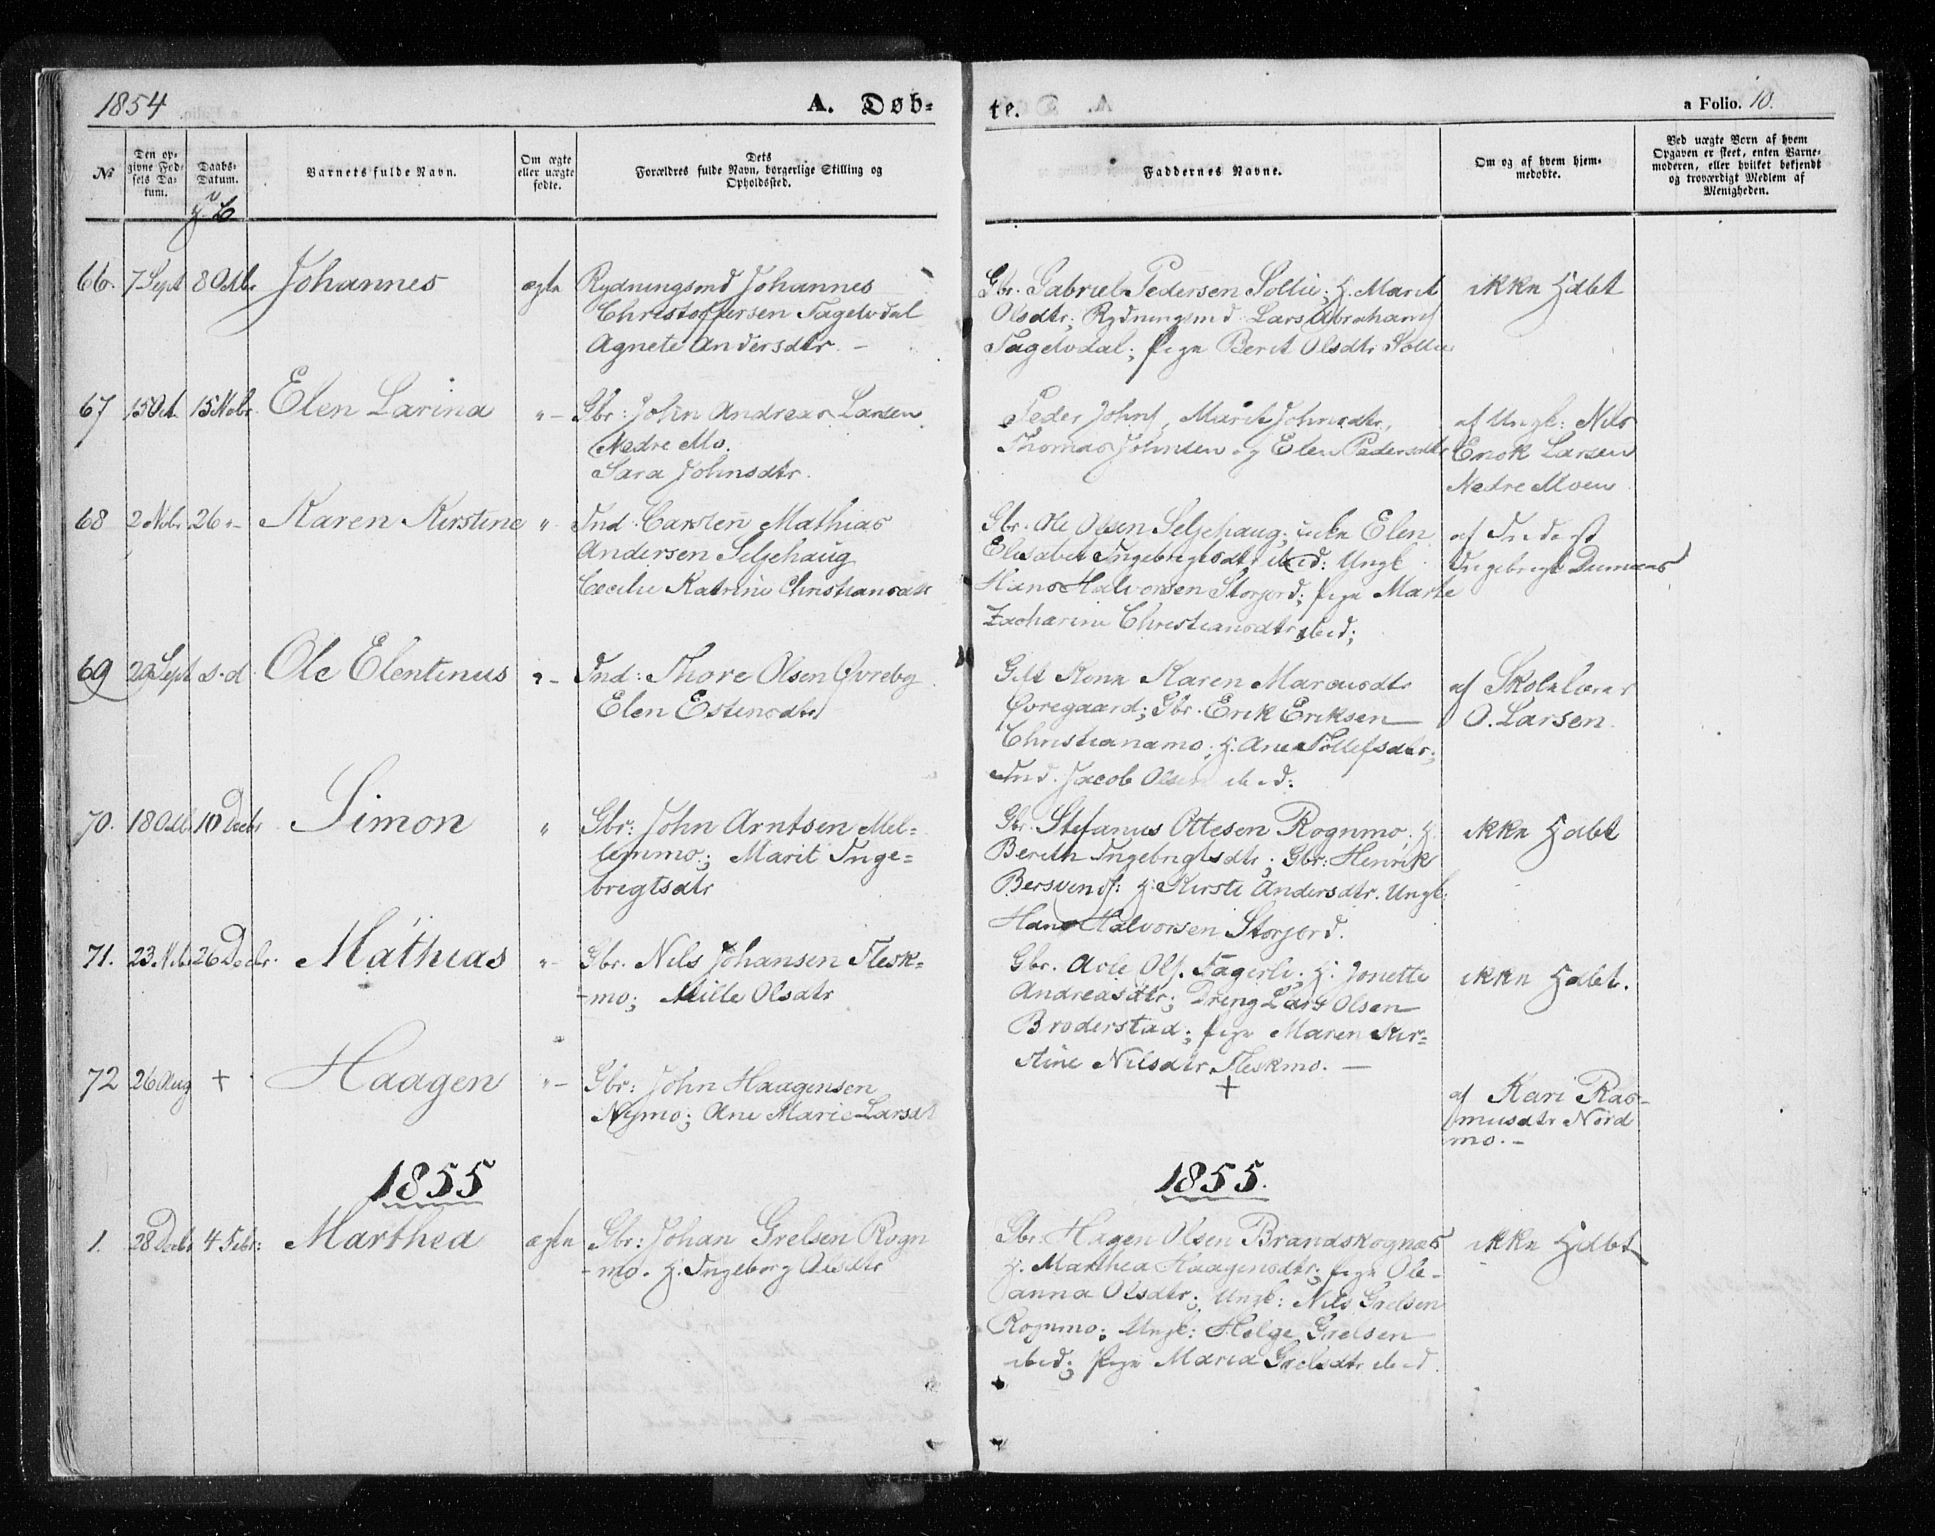 1854
A. Døb-
te.
a Folio. 10.
No
Den op-
givne Fød-
sels Da-
tum.
Daabs-
Datum.
Barnets fulde Navn.
Om ægte
eller uægte
fødte.
Dets
Forældres fulde Navn, borgerlige Stilling og
Opholdssted.
Faddernes Navne.
Om og af hvem hjem-
medøbte.
Ved uægte Born af hvem
Opgaven er skeet, enten Barne-
moderen, eller hvilket bekjendt
og troværdigt Medlem af
Menigheden.
66. 7 Sept 8 Octbr Johannes ægte Rydningsmd Johannes
Christoffersen Fagelvdal
Agnete Andersdtr. -
Gbr. Gabriel Pedersen Sollie; H. Marit
Olsdtr; Rydningsmd Lars Abrahams
Fagelvdal; Pige Berit Olsdtr Sollie
ikke Hdbt
67 15 Oct. 15 Nobr. Elen Larina "- Gbr: John Andreas Larsen
Nedre Mo.
Sara Johnsdtr.
Peder Johns, Marit Johnsdtr,
Thomas Johnsen og Elen Pedersdtr
af Ungk: Nils
Enok Larsen
Nedre Moen
68 2 Nobr 26 "- Karen Kirstine " Ind. Carsten Mathias
Andersen Seljehaug
Cecilie Katrine Christiansdtr
Gbr. Ole Olsen Seljehaug; Enke Elen
Elisabet Ingebrigtsdtr ibid: Ungk
Hans Halvorsen Storjord; Pige Marte
Zacharine Christiansdtr ibid;
af Inderst
Ingebrigt Dumenes
69 29 Sept s.d. Ole Elentinus "- Ind: Thore Olsen Øvreby
Elen Estensdtr
Gift Kone Karen Marcusdtr
Øvregaard; Gbr. Erik Eriksen
Christianamo; H. Ane Tollefsdtr;
Ind. Jacob Olsen ibid:
af Skolelærer
O. Larsen.
70. 18 Octb 10 Decbr Simon " Gbr: John Arntsen Mel-
lemmo; Marit Inge-
brigtsdtr
Gbr. Stefanus Ottesen Rognmo; H.
Bereth Ingebrigtsdtr; Gbr: Henrik
Bersvends: H. Kirsti Andersdtr. Ungk:
Hans Halvorsen Storjord.
ikke Hdbt
71. 23 Nob 26 Decbr. Mathias "- Gbr. Nils Johansen Flesk-
-mo; Mille Olsdtr
Gbr. Avle Ols. Fagerli; H. Jonette
Andreasdtr; Dreng Lars Olsen
Broderstad; Pige Maren Kir-
stine Nilsdtr Fleskmo. —
ikke Hdbt.
72 26 Aug + Haagen "- Gbr: John Haagensen
Nymo; Ane Marie Larsdt
+
af Kari Ras-
musdtr Nord
mo. -
1855
1855.
1. 28 Decbr 4 Febr: Marthea ægte Gbr: Johan Grelsen Rogn
-mo. H. Ingeborg Olsdtr
Gbr. Hagen Olsen Brandskognes
H. Marthea Haagensdtr; Pige Ole-
anna Olsdtr; Ungk: Nils Grelsen
Rognmo; Ungk: Helge Grelsen
ibid; Pige Maria Grelsdtr ibid.
ikke Hdbt